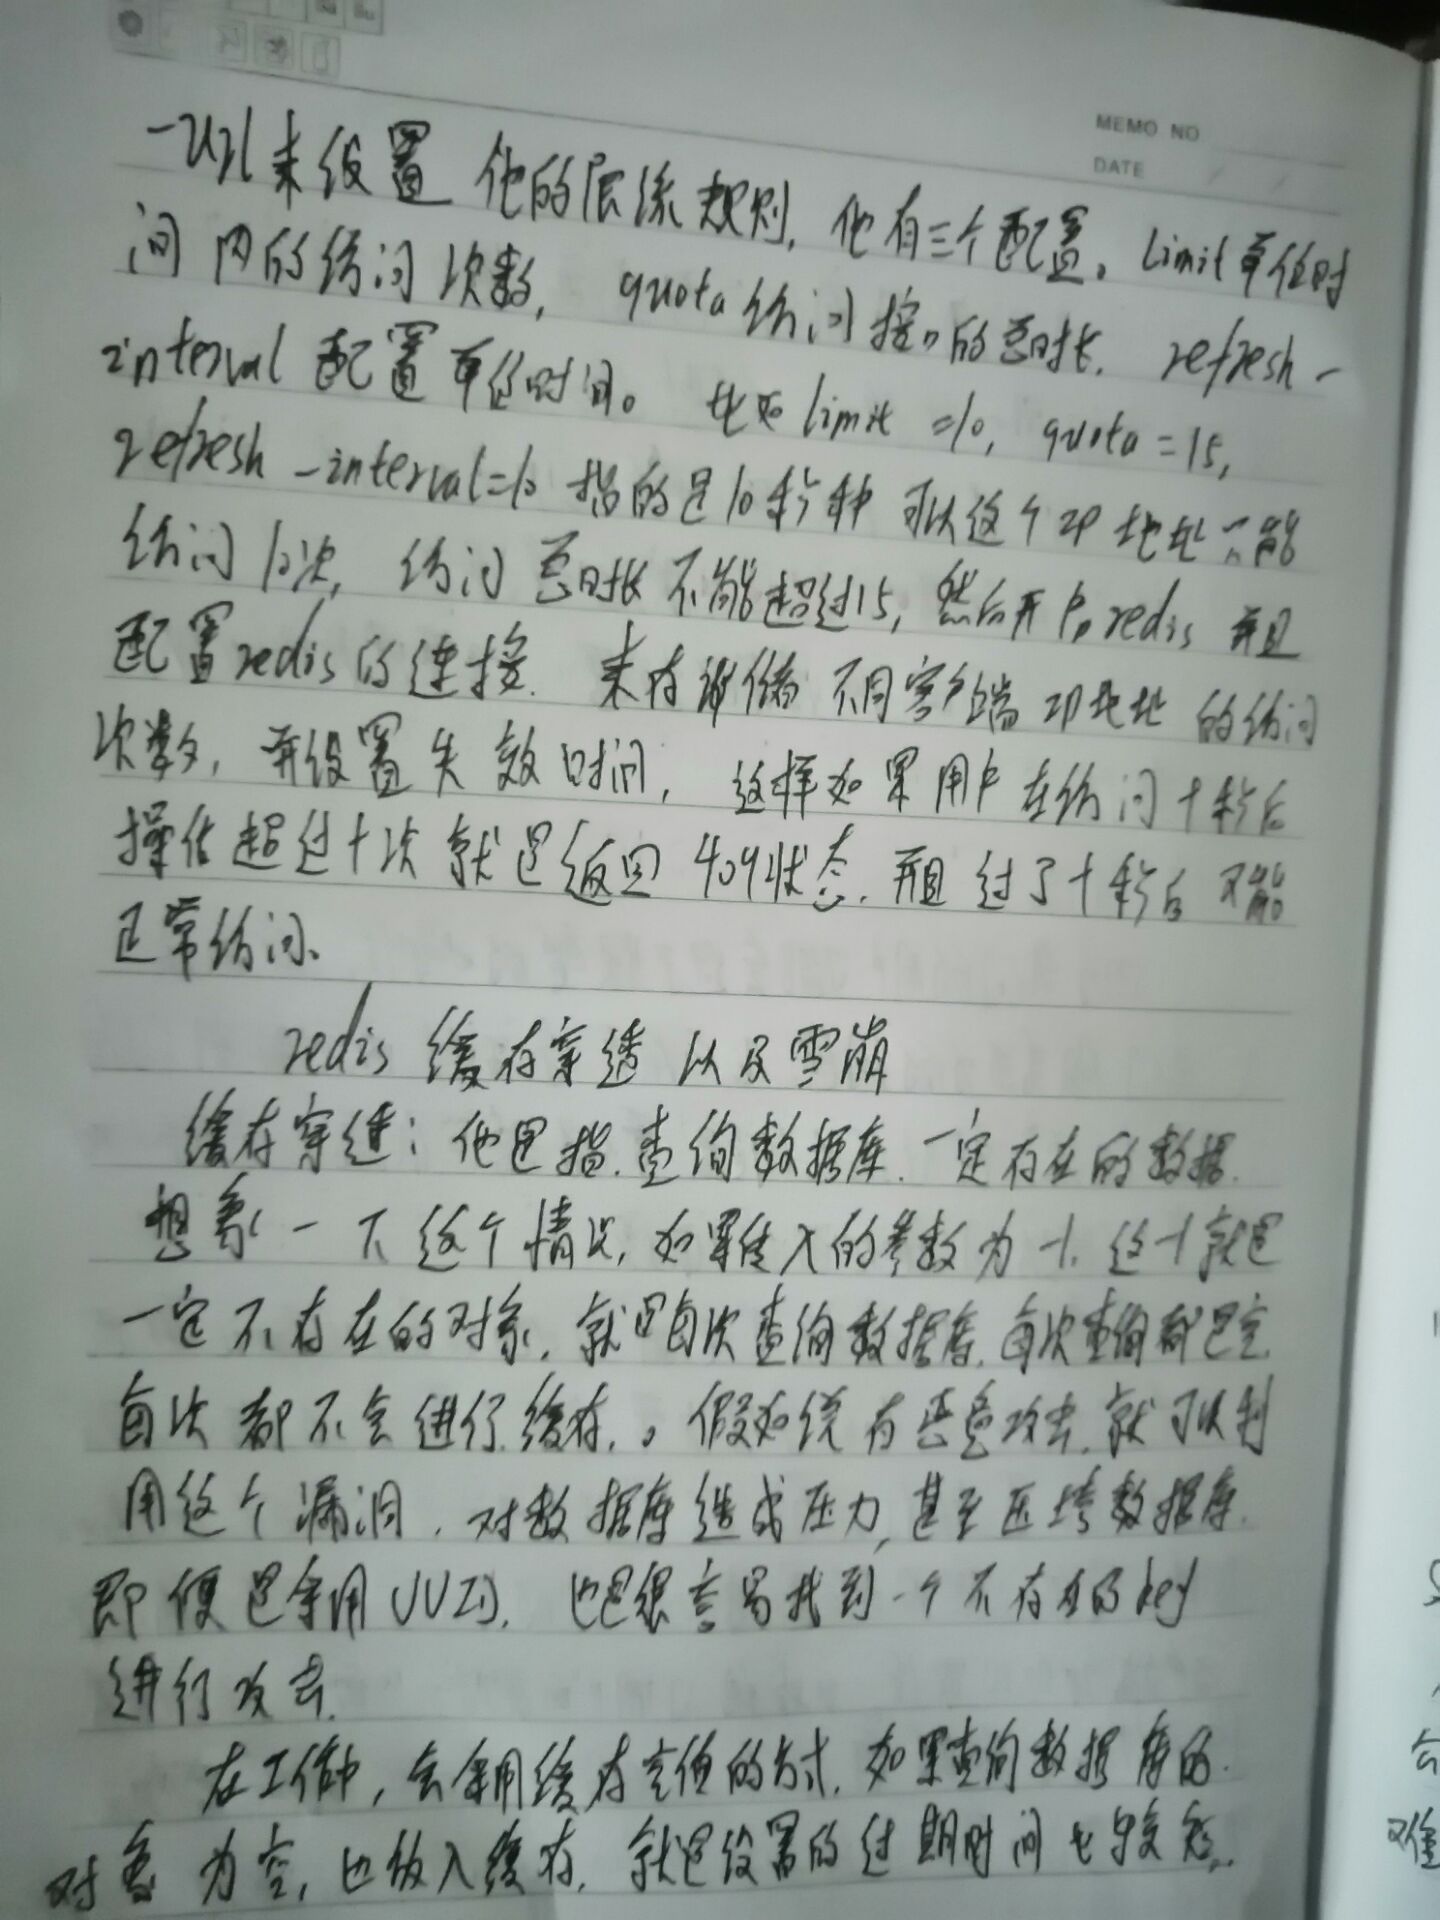 MEMO NO
DATE
一url来设置他的限流规则,他有三个配置。limit单位时
间内的访问次数, quota访问接口的总时长. refresh-
interval配置单位时间。比如limit=10, quota=15,
refresh-interval=10指的是10秒种可以这个IP地址只能
访问10次, 访问总时长不能超过15, 然后开启redis并且
配置redis的连接. 来存储不同客户端IP地址的访问
次数, 并设置失效时间, 这样如果用户在访问十秒后
操作超过十次就是返回409状态. 并且过了十秒后又能
正常访问、
redis缓存穿透以及雪崩
缓存穿透: 他是指.查询数据库.一定存在的数据.
想象一下这个情况, 如果传入的参数为-1. 这-1就是
一定不存在的对象. 就是每次查询数据库. 每次查询都是空.
每次都不会进行缓存.。假如说有恶意攻击.就可以利
用这个漏洞. 对数据库造成压力, 甚至压垮数据库.
即便是采用UUID. 也是很容易找到一个不存在的key
进行攻击.
在工作中, 会采用缓存空值的方式. 如果查询数据库的.
对象为空, 也放入缓存. 就是设置的过期时间也较短..